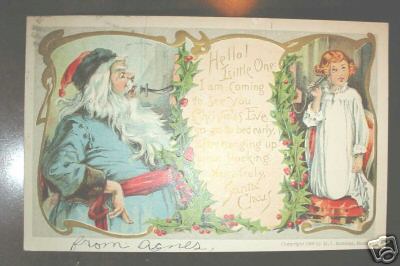 Hello!
Little One.
I am coming
to see you
Christmas Eve
so go to bed early,
after hanging up
your Stocking
Yours truly,
Santa Claus
Copyright 190
from Agnes.